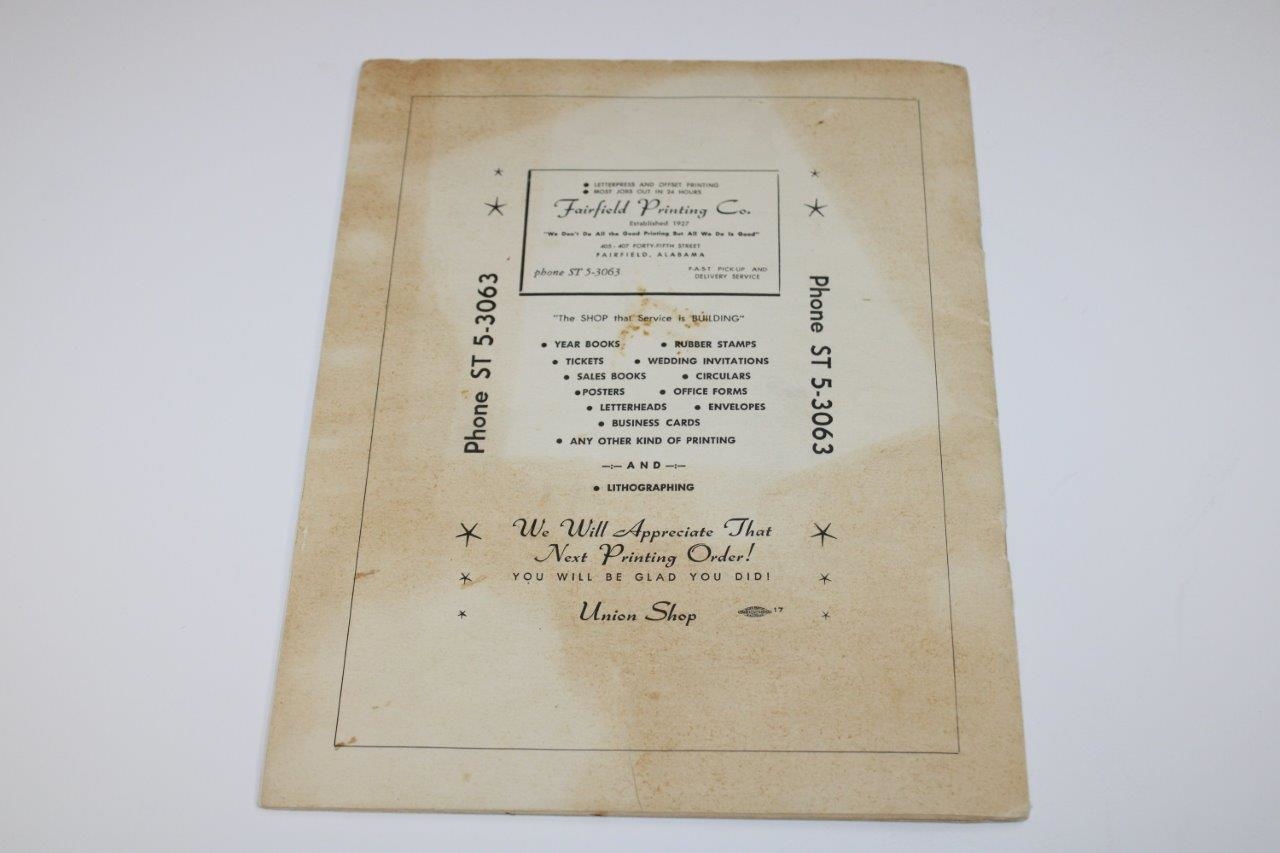 ● LETTERPRESS AND OFFSET PRINTING
● MOST JOBS OUT IN 24 HOURS
Fairfield Printing Co.
Established 1927
"We Don't Do All the Good Printing But All We Do Is Good"
405 - 407 FORTY-FIFTH STREET
FAIRFIELD, ALABAMA
phone ST 5-3063
F-A-S-T PICK-UP AND
DELIVERY SERVICE
Phone ST 5-3063
Phone ST 5-3063
"The SHOP that Service is BUILDING"
● YEAR BOOKS ● RUBBER STAMPS
● TICKETS ● WEDDING INVITATIONS
● SALES BOOKS ● CIRCULARS
● POSTERS ● OFFICE FORMS
● LETTERHEADS ● ENVELOPES
● BUSINESS CARDS
● ANY OTHER KIND OF PRINTING
—:— AND —:—
● LITHOGRAPHING
We Will Appreciate That
Next Printing Order!
YOU WILL BE GLAD YOU DID!
Union Shop 17